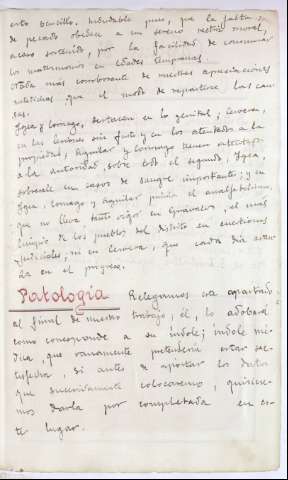 esto sencillo. indudable pues, que la falta
de pecado obedece a un sereno rectriz moral,
acaso sostenido, por la facilidad de consumar
los matrimonios en edades tempranas.
Otra más corroborante de nuestras apreciaciones
es el modo de repartirse, las cau
sas.
Igea y Cornago, destacan en lo genital; Cervera,
en las lesiones sin fasto y en los atentados a la
propiedad; Aguilar y Cornago tienen
a la autoridad, sobre todo el segundo; Igea,
sobresale en casos de sangre importante; y en
Igea, Cornago y Aguilar pinta el analfabetismo,
que no lleva tanto rigor en Grávalos, el más
limpio de los pueblos del distrito en cuestiones
judiciales; ni en Cervera, que cada día
da en el progreso.
Patología Relegamos este apartado
al final de nuestro trabajo; él, lo adobará
como corresponde a su índole; índole mé-
dica, que vanamente pretendería estar sa-
tisfecha, si antes de aportar los datos
que sucesivamente colocaremos, quisiéra-
mos darla por completada en es-
te lugar.